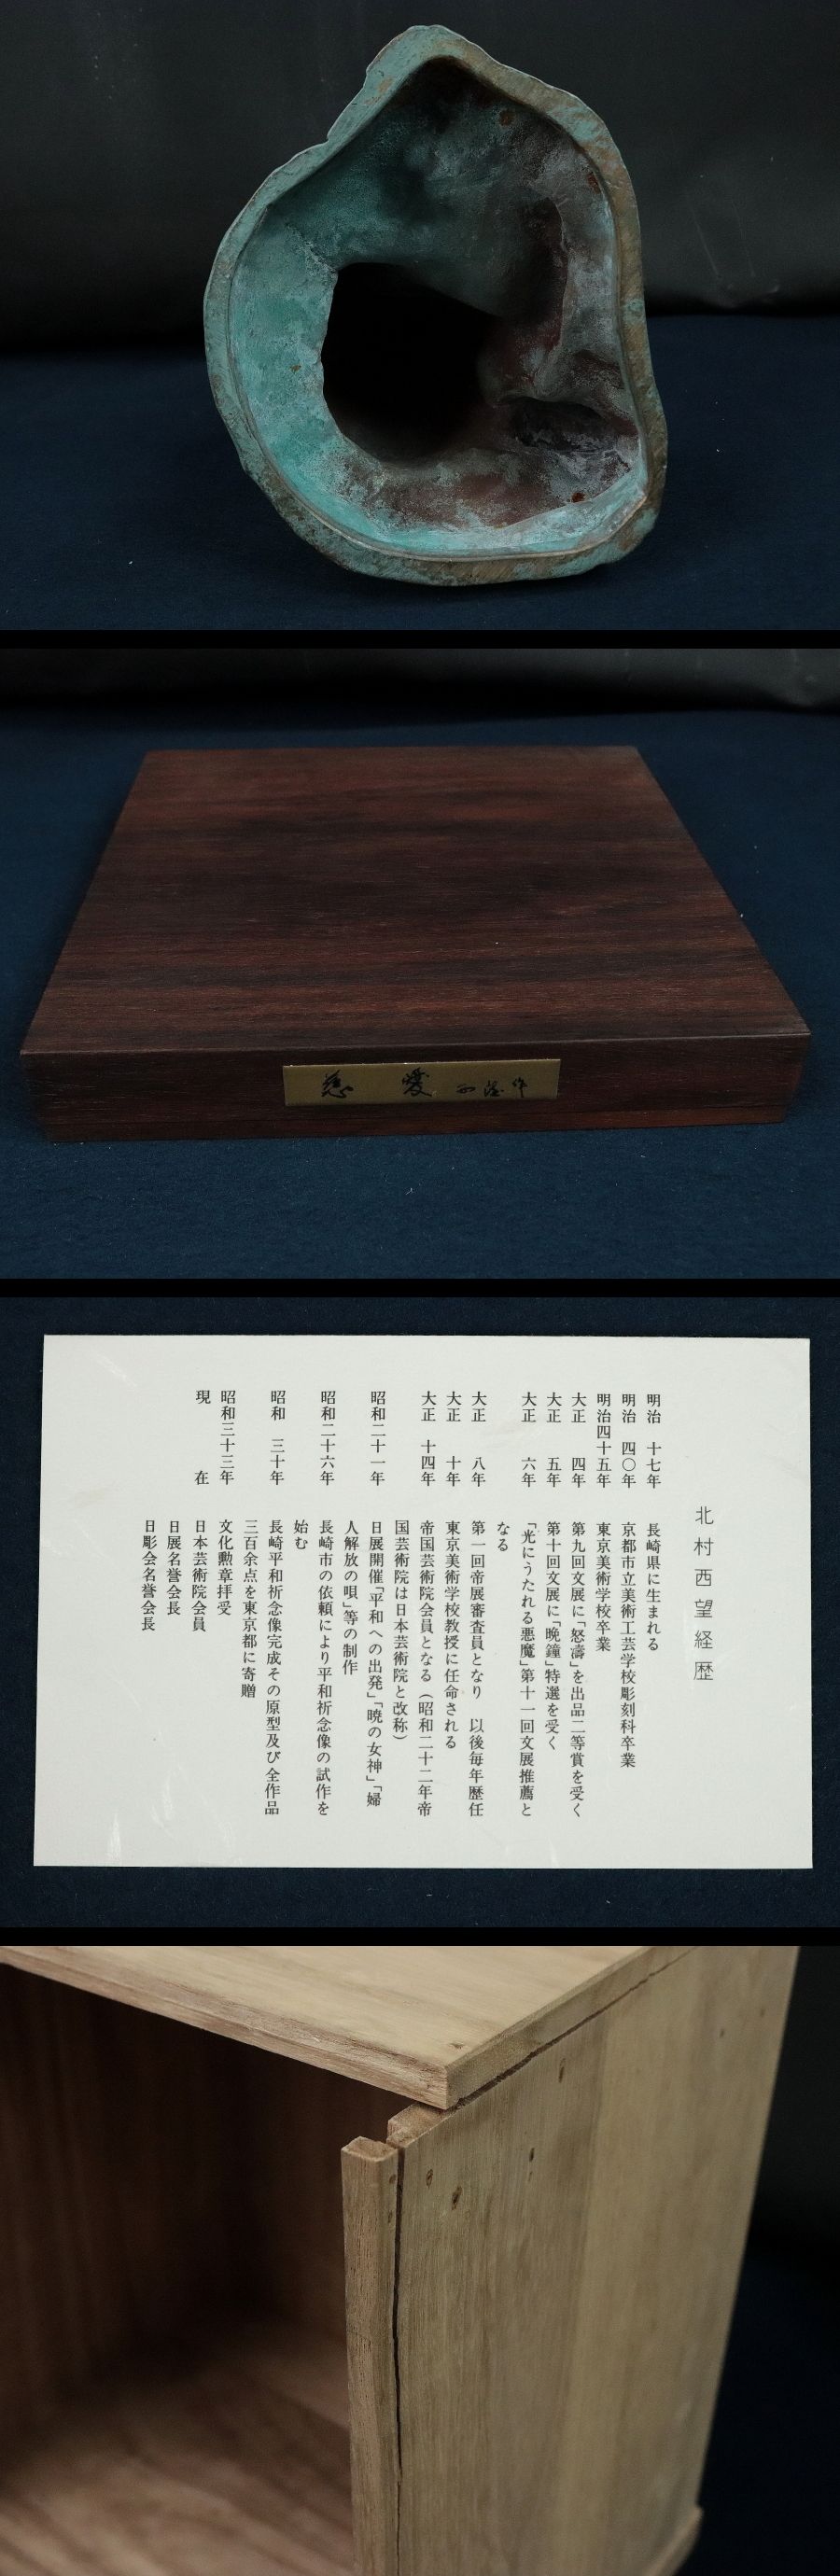 慈愛 西望作
北村西望経歴
明治 十七年 長崎県に生まれる
明治 四〇年 京都市立美術工芸学校彫刻科卒業
明治四十五年 東京美術学校卒業
大正 四年 第九回文展に「怒濤」を出品二等賞を受く
大正 五年 第十回文展に「晩鐘」特選を受く
大正 六年 「光にうたれる悪魔」第十一回文展推薦と
なる
大正 八年 第一回帝展審査員となり 以後毎年歴任
大正 十年 東京美術学校教授に任命される
大正 十四年 帝国芸術院会員となる（昭和二十二年帝
国芸術院は日本芸術院と改称）
昭和二十一年 日展開催「平和への出発」「暁の女神」「婦
人解放の唄」等の制作
昭和二十六年 長崎市の依頼により平和祈念像の試作を
始む
昭和 三十年 長崎平和祈念像完成その原型及び全作品
三百余点を東京都に寄贈
昭和三十三年 文化勲章拝受
現在 日本芸術院会員
日展名誉会長
日彫会名誉会長